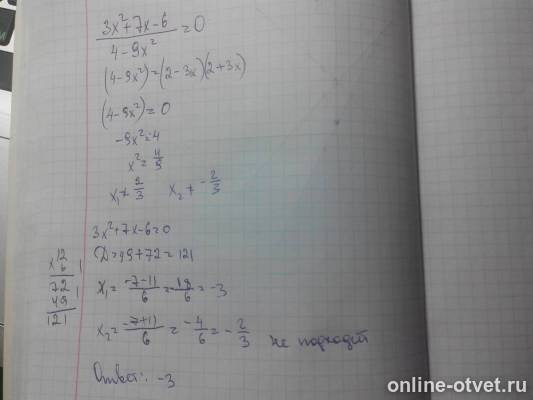 (3x²+7x-6)/(4-9x²) = 0
(4-9x²)=(2-3x)(2+3x)
(4-9x²)=0
-9x²=-4
x²=4/9
x₁≠2/3 x₂≠-2/3
3x²+7x-6=0
D=49+72=121
x₁=(-7-11)/6=-18/6=-3
x₂=(-7+11)/6=-4/6=-2/3 не подходит
Ответ: -3
12
x 6
72
49
121
online-otvet.ru